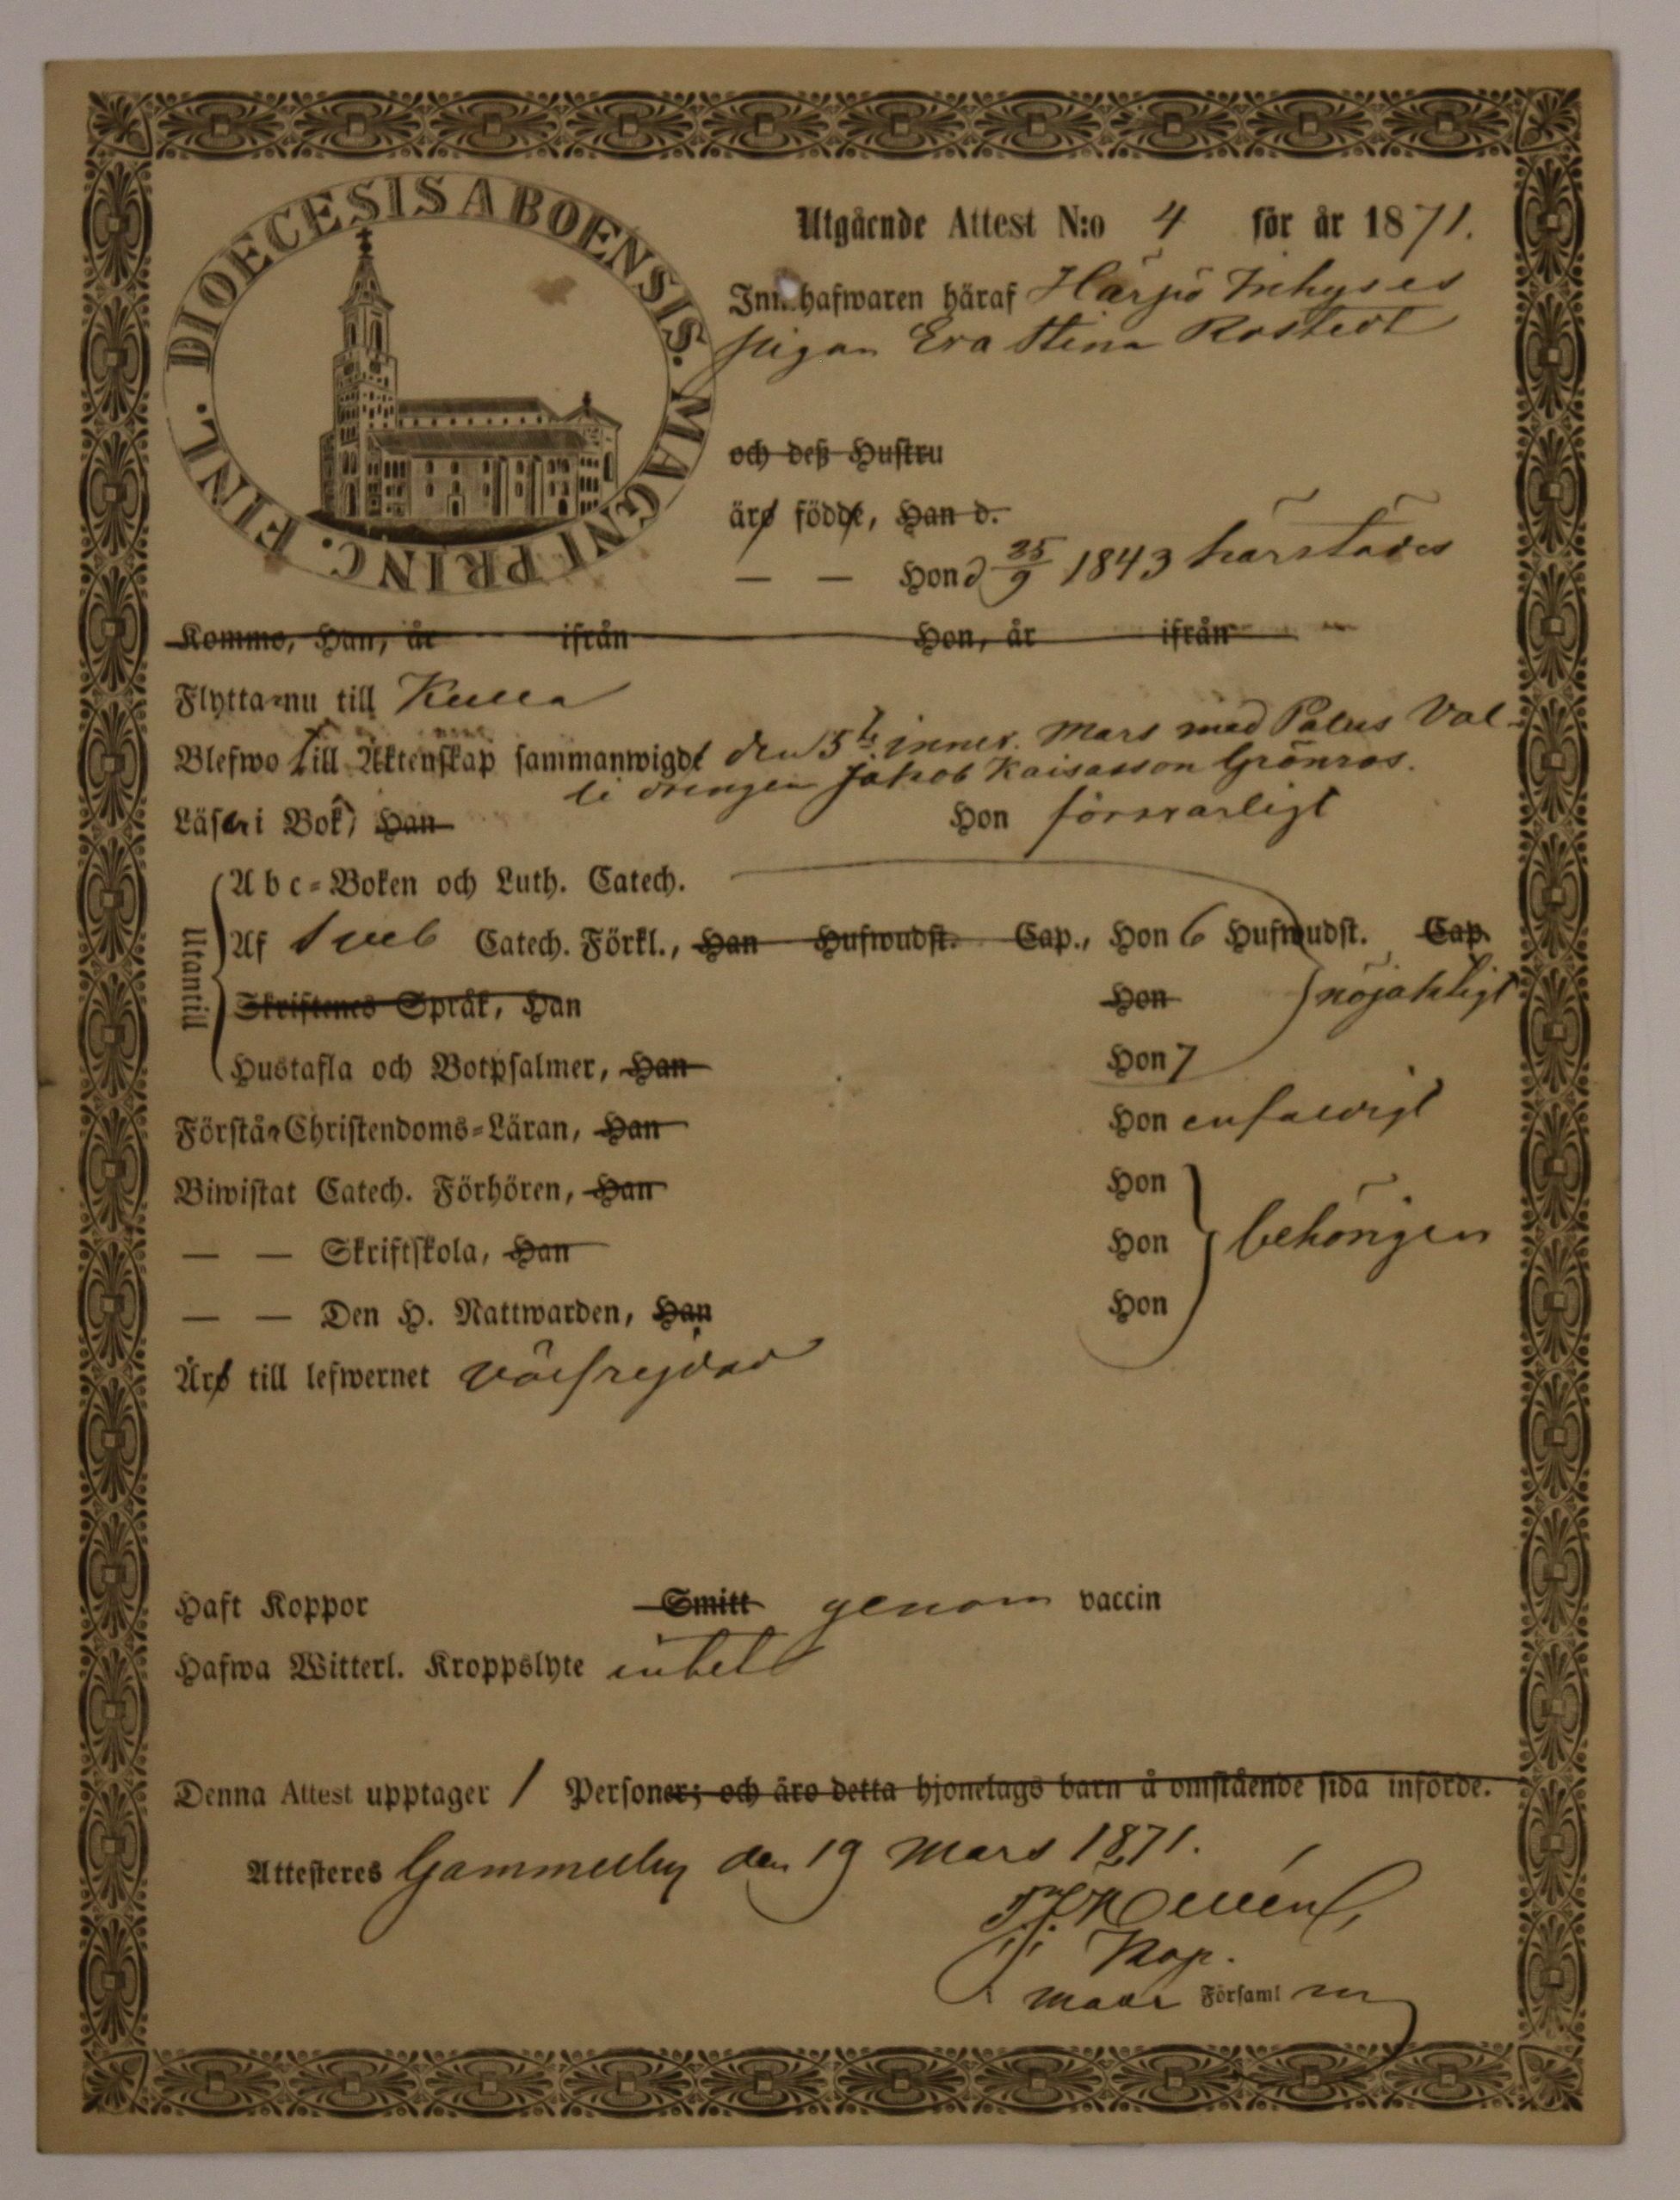 FINL. DIOECESIS ABOENSIS. MAGNI PRINC.
Utgående Attest N:o 4 för år 1871.
Innehafwaren häraf Härpö Inhyses
pigan Eva Stina Rostedt
och deß Hustru
äro födde, Han d.
— — Hon d 25/9 1843 härstädes
Kommo, Han, år ifrån Hon, år ifrån
Flytta nu till Kulla
Blefwo till Äktenskap sammanwigde den 5te innev. Mars med Palus Val-
li drengen Jakob Kaisasson Grönros.
Läser i Bok, Han Hon försvarligt
Utantill
Abc-Boken och Luth. Catech.
Af Sveb Catech. Förkl., Han Hufwudst. Cap., Hon 6 Hufwudst. Cap.
Skriftenes Språk, Han Hon nöjaktligt
Hustafla och Botpsalmer, Han Hon 7
Förstår Christendoms-Läran, Han Hon enfaldigt
Biwistat Catech. Förhören, Han Hon
— — Skriftskola, Han Hon behörigen
— — Den H. Nattwarden, Han Hon
Äro till lefwernet välfrejdad
Haft Koppor Smitt genom vaccin
Hafwa Witterl. Kroppslyte intet
Denna Attest upptager 1 Personer; och äro detta hjonelags barn å omstående sida införde.
Attesteres Gammelby den 19 Mars 1871.
Kap.
Församl